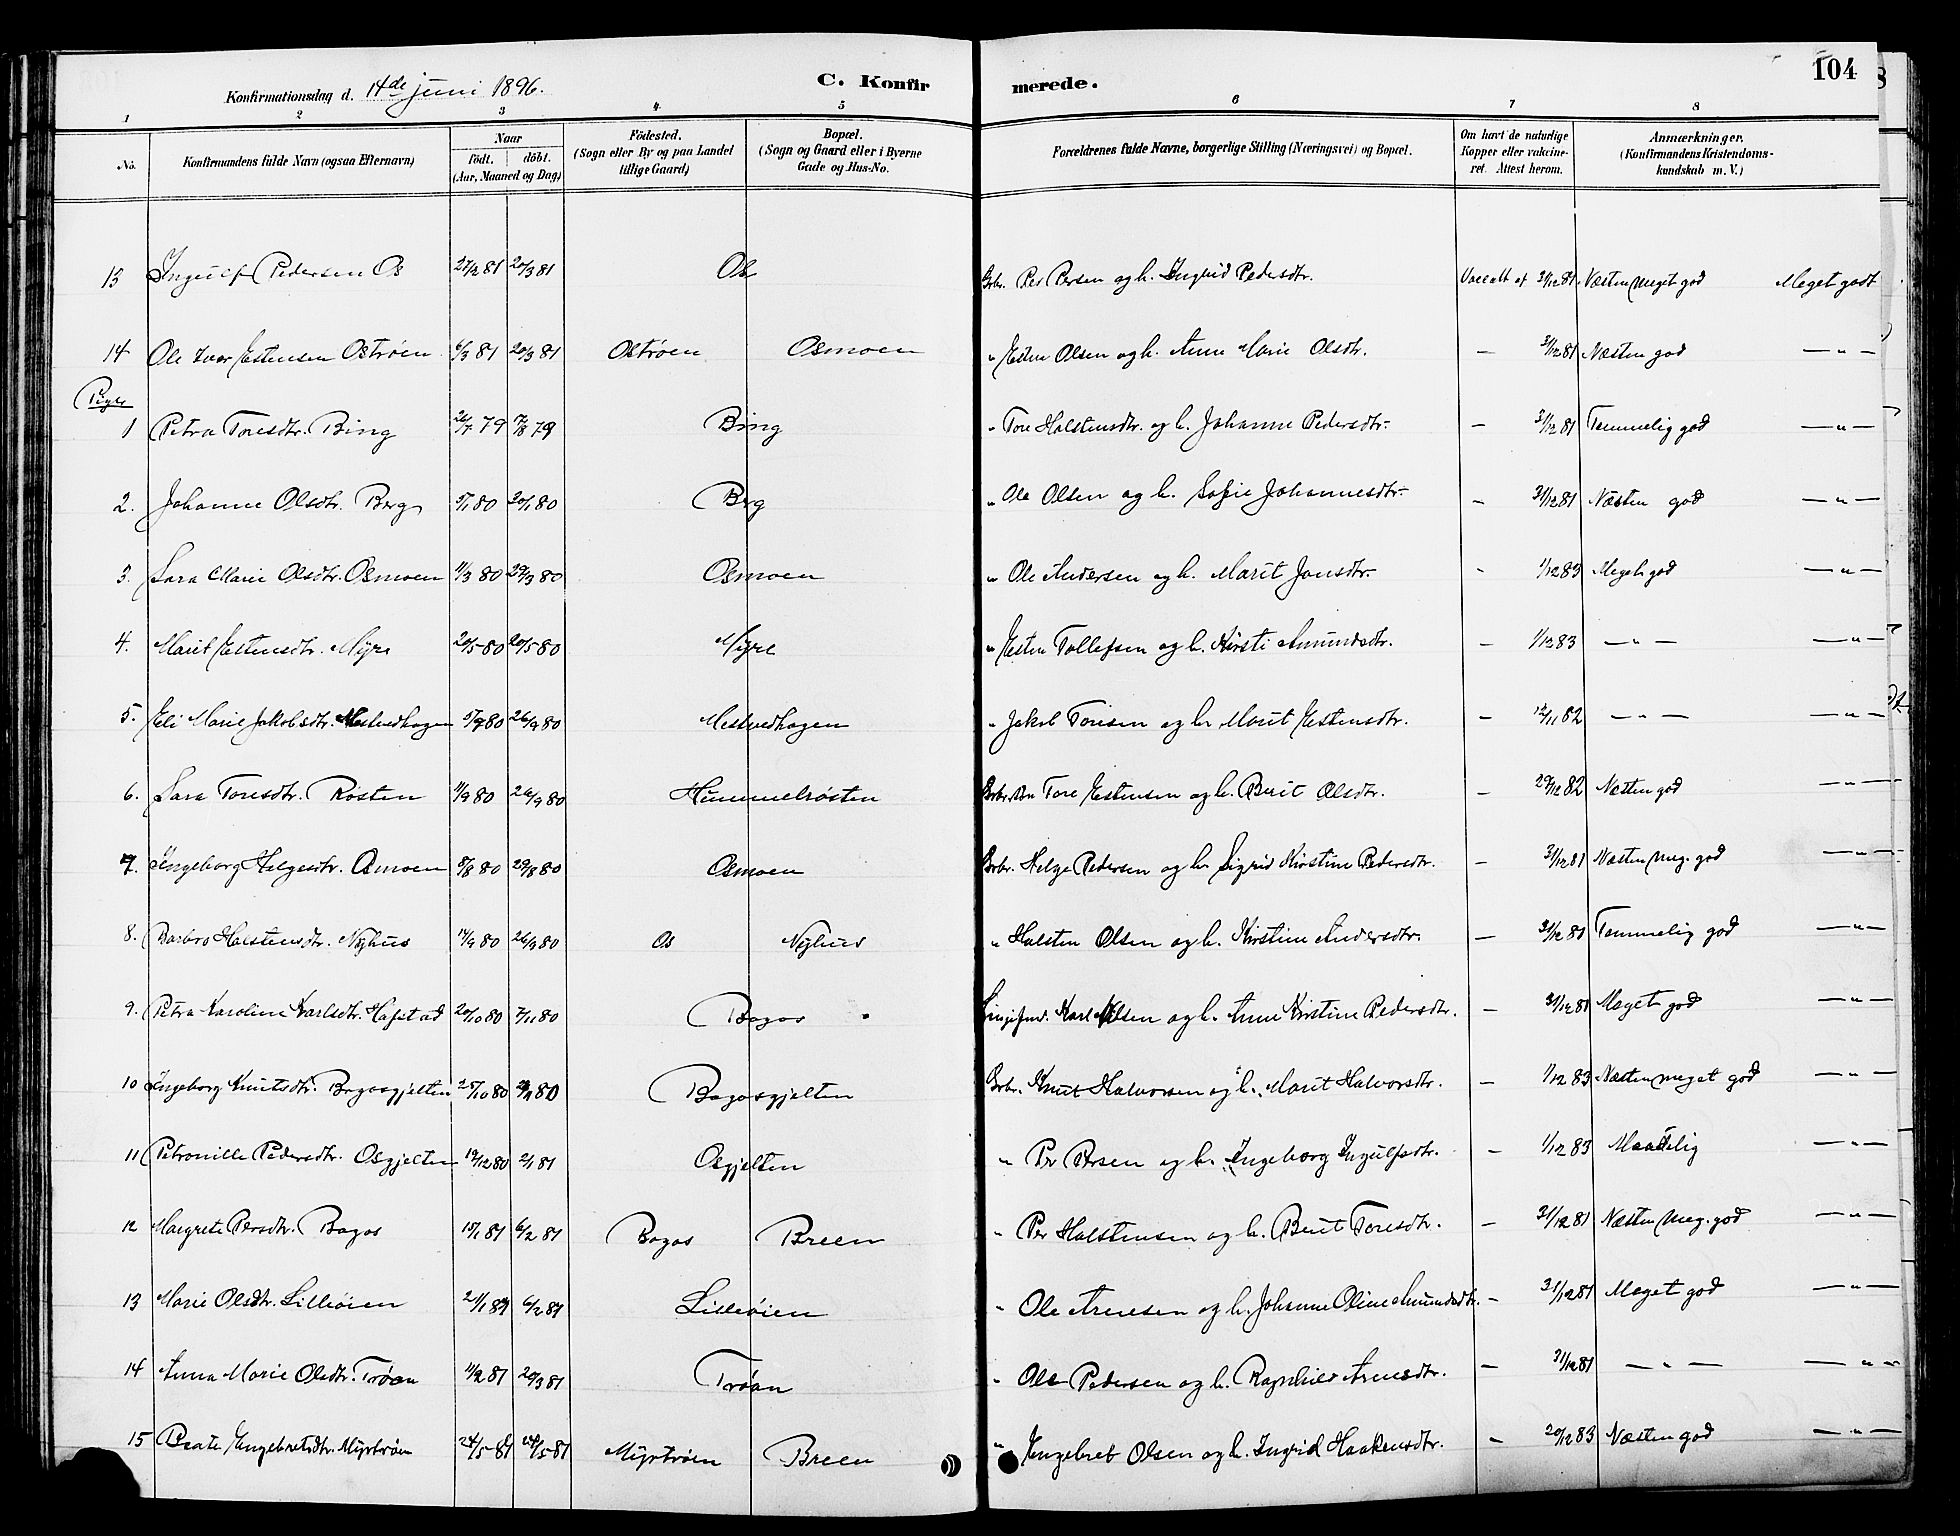 104
Konfirmationsdag d. 14de juni 1896. C. Konfirmerede.
1 2 3 4 5 6 7 8
No. Konfirmandens fulde Navn (ogsaa Efternavn) Naar födt. döbt. (Aar, Maaned og Dag) Födested. (Sogn eller By og paa Landet tillige Gaard) Bopæl. (Sogn og Gaard eller i Byerne Gade og Hus-No. Forældrenes fulde Navne, borgerlige Stilling (Næringsvei) og Bopæl. Om havt de naturlige Kopper eller vakcineret. Attest herom. Anmærkninger, (Konfirmandens Kristendomskundskab m. V.)
13 Ingulf Pedersen Os 27/2 81 20/3 81 Os Gbr. Per Persen og h. Ingrid Pedersdtr. 31/12 81 Næsten meget god Meget godt
14 Ole Ivar Estensen Ostrøen 6/3 81 20/3 81 Ostrøen Osmoen " Esten Olsen og h. Anne Marie Olsdtr. — 31/12 81 Næsten god — " —
Piger
1 Petra Toresdtr. Bing 26/7 79 17/8 79 Bing " Tore Halstensdtr. og h. Johanne Pedersdtr. — 31/12 81 Temmelig god — " —
2. Johanne Olsdtr. Berg 5/1 80 20/1 80 Berg " Ole Olsen og h. Sofie Johannesdtr. — 31/12 81 Næsten god — " —
3. Sara Marie Olsdtr. Osmoen 11/3 80 29/3 80 Osmoen " Ole Andersen og h. Marit Jonsdtr. - 1/12 83 Meget god — " —
4. Marit Estensdtr. Myre 20/5 80 20/5 80 Myre " Esten Tollefsen og h. Kirsti Amundsdtr. — 1/12 83 — " — — " —
5. Eli Marie Jakobsdtr. Mestvedhagen 5/9 80 26/9 80 Mestvedhagen " Jakob Toresen og h. Marit Estensdtr. — 12/11 82 — " — — " —
6. Sara Toresdtr. Røsten 11/9 80 26/9 80 Hummelrøsten Tore Estensen og h. Berit Olsdtr. — 29/12 82 Næsten god — " —
7. Ingeborg Helgesdtr. Osmoen 8/8 80 29/8 80 Osmoen Gbr. Helge Pedersen og h. Sigrid Kirstine Pedersdtr. — 31/12 81 Næsten meg. god — " —
8. Barbro Halstensdtr. Nyhus 14/9 80 26/9 80 Os Nyhus " Halsten Olsen og h. Kirstine Andersdtr. — 31/12 81 Temmelig god — " —
9. Petra Karoline Karlsdtr. Hafstad 20/10 80 7/11 80 Bagos Karl Olsen og h. Anne Kirstine Pedersdtr. — 31/12 81 Meget god — " —
10 Ingeborg Knutsdtr. Bagosgjelten 25/10 80 Bagosgjelten Gbr. Knut Halvorsen og h. Marit Halvorsdtr. — 1/12 83 Næsten meget god — " —
11 Petronille Pedersdtr. Osgjelten 19/12 80 2/1 81 Osgjelten " Per Persen og h. Ingeborg Ingulfsdtr. — 1/12 83 Maadelig — " —
12 Margrete Persdtr. Bagos 15/1 81 6/2 81 Bagos Breen " Per Halstensen og h. Berit Toresdtr. — 31/12 81 Næsten meg. god — " —
13 Marie Olsdtr. Lilleøien 21/1 81 6/2 81 Lilleøien " Ole Arnesen og h. Johanne Oline Amundsdtr. — 31/12 81 Meget god — " —
14 Anna Marie Olsdtr. Trøan 11/2 81 20/3 81 Trøan " Ole Pedersen og h. Ragnhild Arnesdtr. — 31/12 81 — " — — " —
15 Beate Engebretsdtr. Myrtrøen 24/5 81 Myrtrøen Breen " Engebret Olsen og h. Ingrid Haakensdtr. — 20/12 83 Næsten god — " —